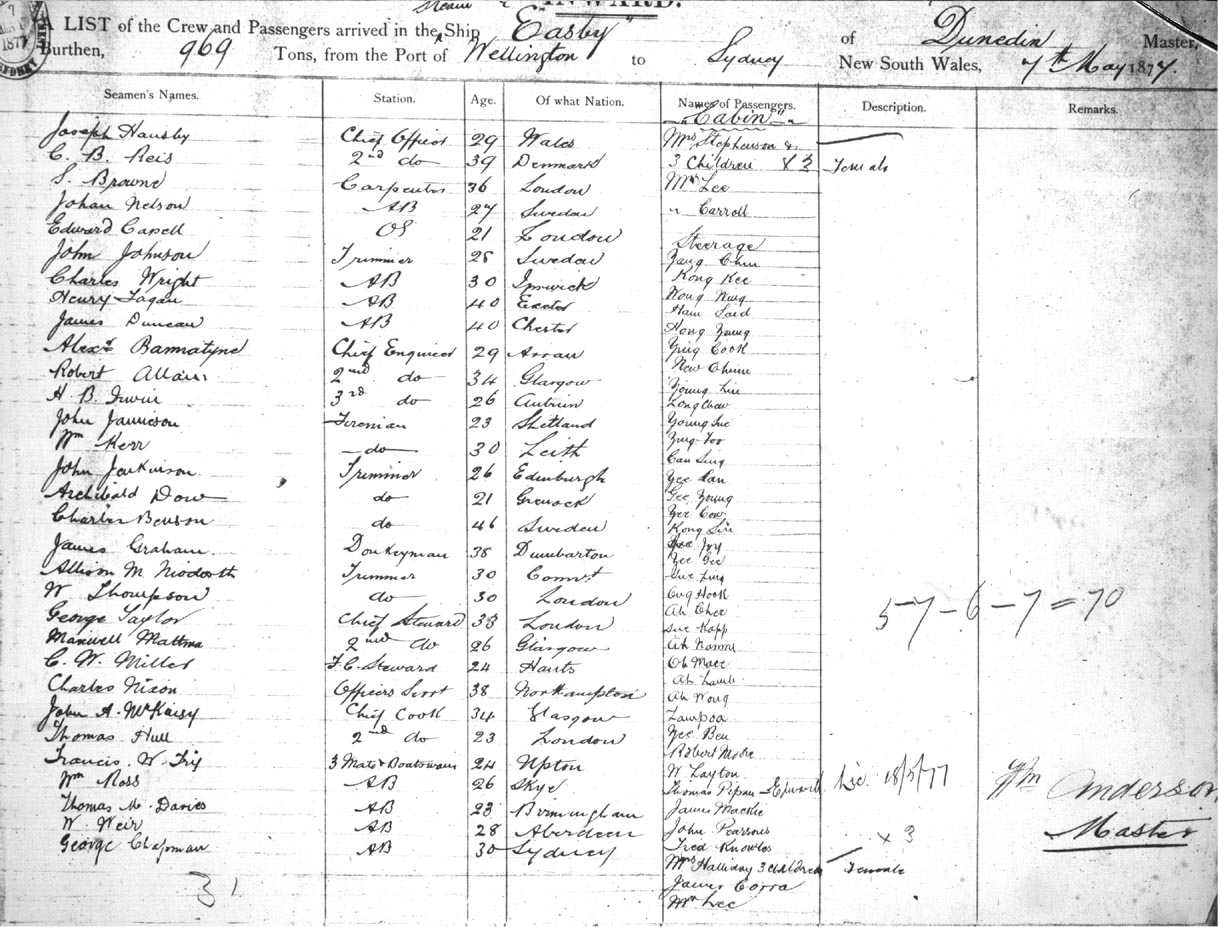 Steam INWARD.
A LIST of the Crew and Passengers arrived in the Ship "Easby" of Dunedin Master,
Burthen, 969 Tons, from the Port of Wellington to Sydney New South Wales, 7th May 1877.
Seamen's Names. Station. Age. Of what Nation. Names of Passengers. Description. Remarks.
"Cabin"
Joseph Hansby Chief Officer 29 Wales Mrs Stephenson &
C. B. Reis 2nd do 39 Denmark 3 Children & 2 Female
S. Browne Carpenter 36 London Mr Lee
Johan Nelson AB 27 Sweden " Carroll
Edward Capell OS 21 London Steerage
John Johnson Trimmer 28 Sweden Yang Chun
Charles Wright AB 30 Ipswich Kong Kee
Henry Fagan AB 40 Exeter Wong Nung
Ham Said
James Duncan AB 40 Chester Hong Young
Alexr Bannatyne Chief Engineer 29 Arran Ying Cook
New Chum
Robert Allan 2nd do 34 Glasgow Young Lin
H. B. Irwin 3rd do 26 Antrim Long Chow
John Jamieson Fireman 23 Shetland Young Sue
Wm Kerr do 30 Leith
Can Sing
John Jenkinson Trimmer 26 Edinburgh Yee Kan
Archibald Dow do 21 Greenock Gee Young
Yee Cow
Charles Benson do 46 Sweden Kong Sin
James Graham Donkeyman 38 Dumbarton Joy
Yee Gee
Allison M Trimmer 30 Sue Ling
W Thompson do 30 London Hook
Ah Chee
George Taylor Chief Steward 33 London Sue Kapp
Maxwell 2nd do 26 Glasgow Ah
C. W. Miller F.C. Steward 24 Hants Oh
Ah Lamb
Charles Nixon Officers Servt 38 Northampton Ah Wong
John A. Chief Cook 34 Glasgow
Thomas Hull 2nd do 23 London Yee Ben
Francis W. Frix 3 Mate & Boatswain 24 Upton Robert
Wm Ross AB 26 Skye W Layton
Thomas Edward Lic. 18/5/77 Wm Anderson
Thomas M. Davies AB 23 Birmingham James Mackie
W Weir AB 28 Aberdeen John Pearsons x 3 Master
George Chapman AB 30 Sydney Fred Knowles
Mrs Halliday 3 children Female
James Corra
Mr Lee
57-6-7=70
31